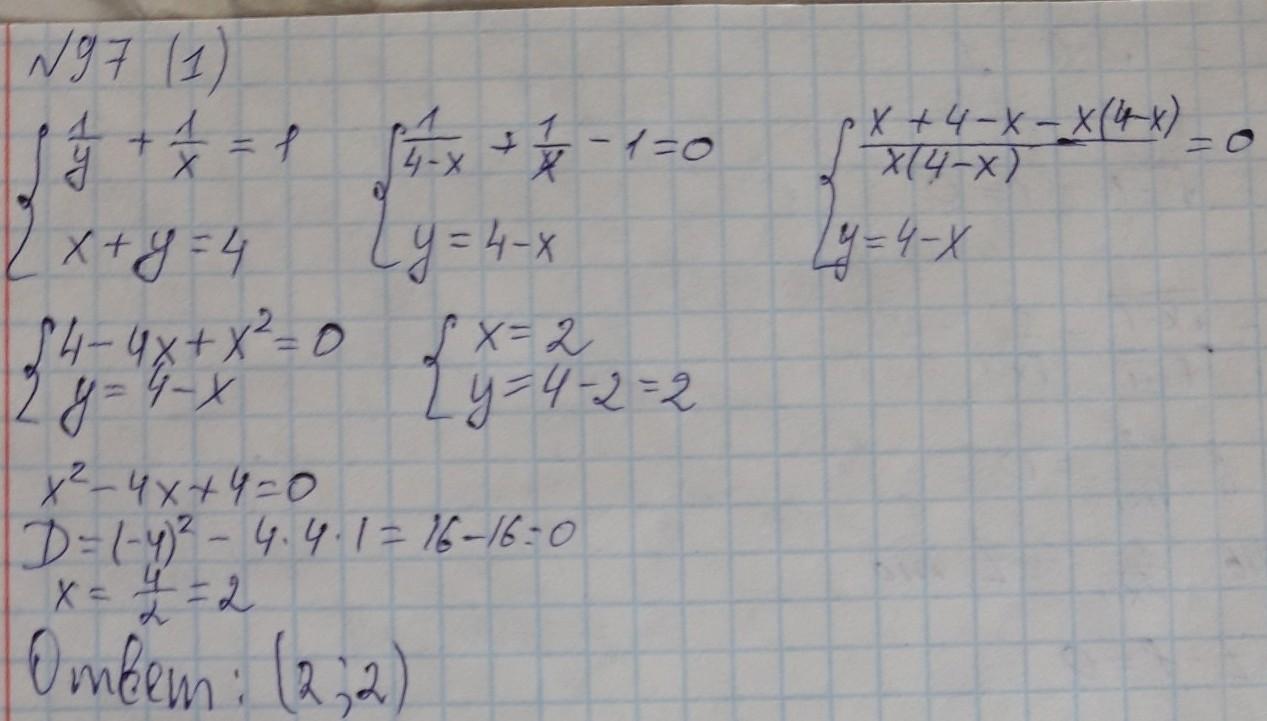 №97 (1)
{ 1/y + 1/x = 1 { 1/(4-x) + 1/x - 1 = 0 { (x + 4 - x - x(4-x))/(x(4-x)) = 0
x + y = 4 y = 4-x y = 4-x
{ 4 - 4x + x² = 0 { x = 2
y = 4-x y = 4-2 = 2
x² - 4x + 4 = 0
D = (-4)² - 4·4·1 = 16-16=0
x = 4/2 = 2
Ответ: (2;2)